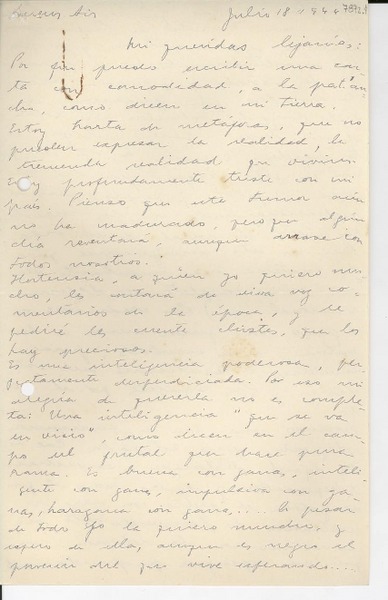 Buenos Aires Julio 18 - 944 7892.9
Mi queridas lejanías:
Por fin puedo escribir una car-
ta con comodidad, a la pat' an-
cha, como dicen en mi tierra.
Estoy harta de metáforas, que no
pueden expresar la realidad, la
tremenda realidad que vivimos.
Estoy profundamente triste con mi
país. Pienso que este tumor aún
no ha madurado, pero que algún
día reventará, aunque arrase con
todos nosotros.
Hortensia, a quien yo quiero mu-
cho, les contará de viva voz co-
mentarios de la época, y le
pediré les cuente chistes, que los
hay preciosos.
Es una inteligencia poderosa, per-
fectamente desperdiciada. Por eso mi
alegría de quererla no es comple-
ta: Una inteligencia "que se va
en vicio", como dicen en el cam-
po del frutal que hace pura
rama. Es buena con ganas, inteli-
gente con ganas, impulsiva con ga-
nas, haragana con ganas.... A pesar
de todo yo la quiero mucho, y
espero de ella, aunque es negro el
porvenir del que vive esperando....